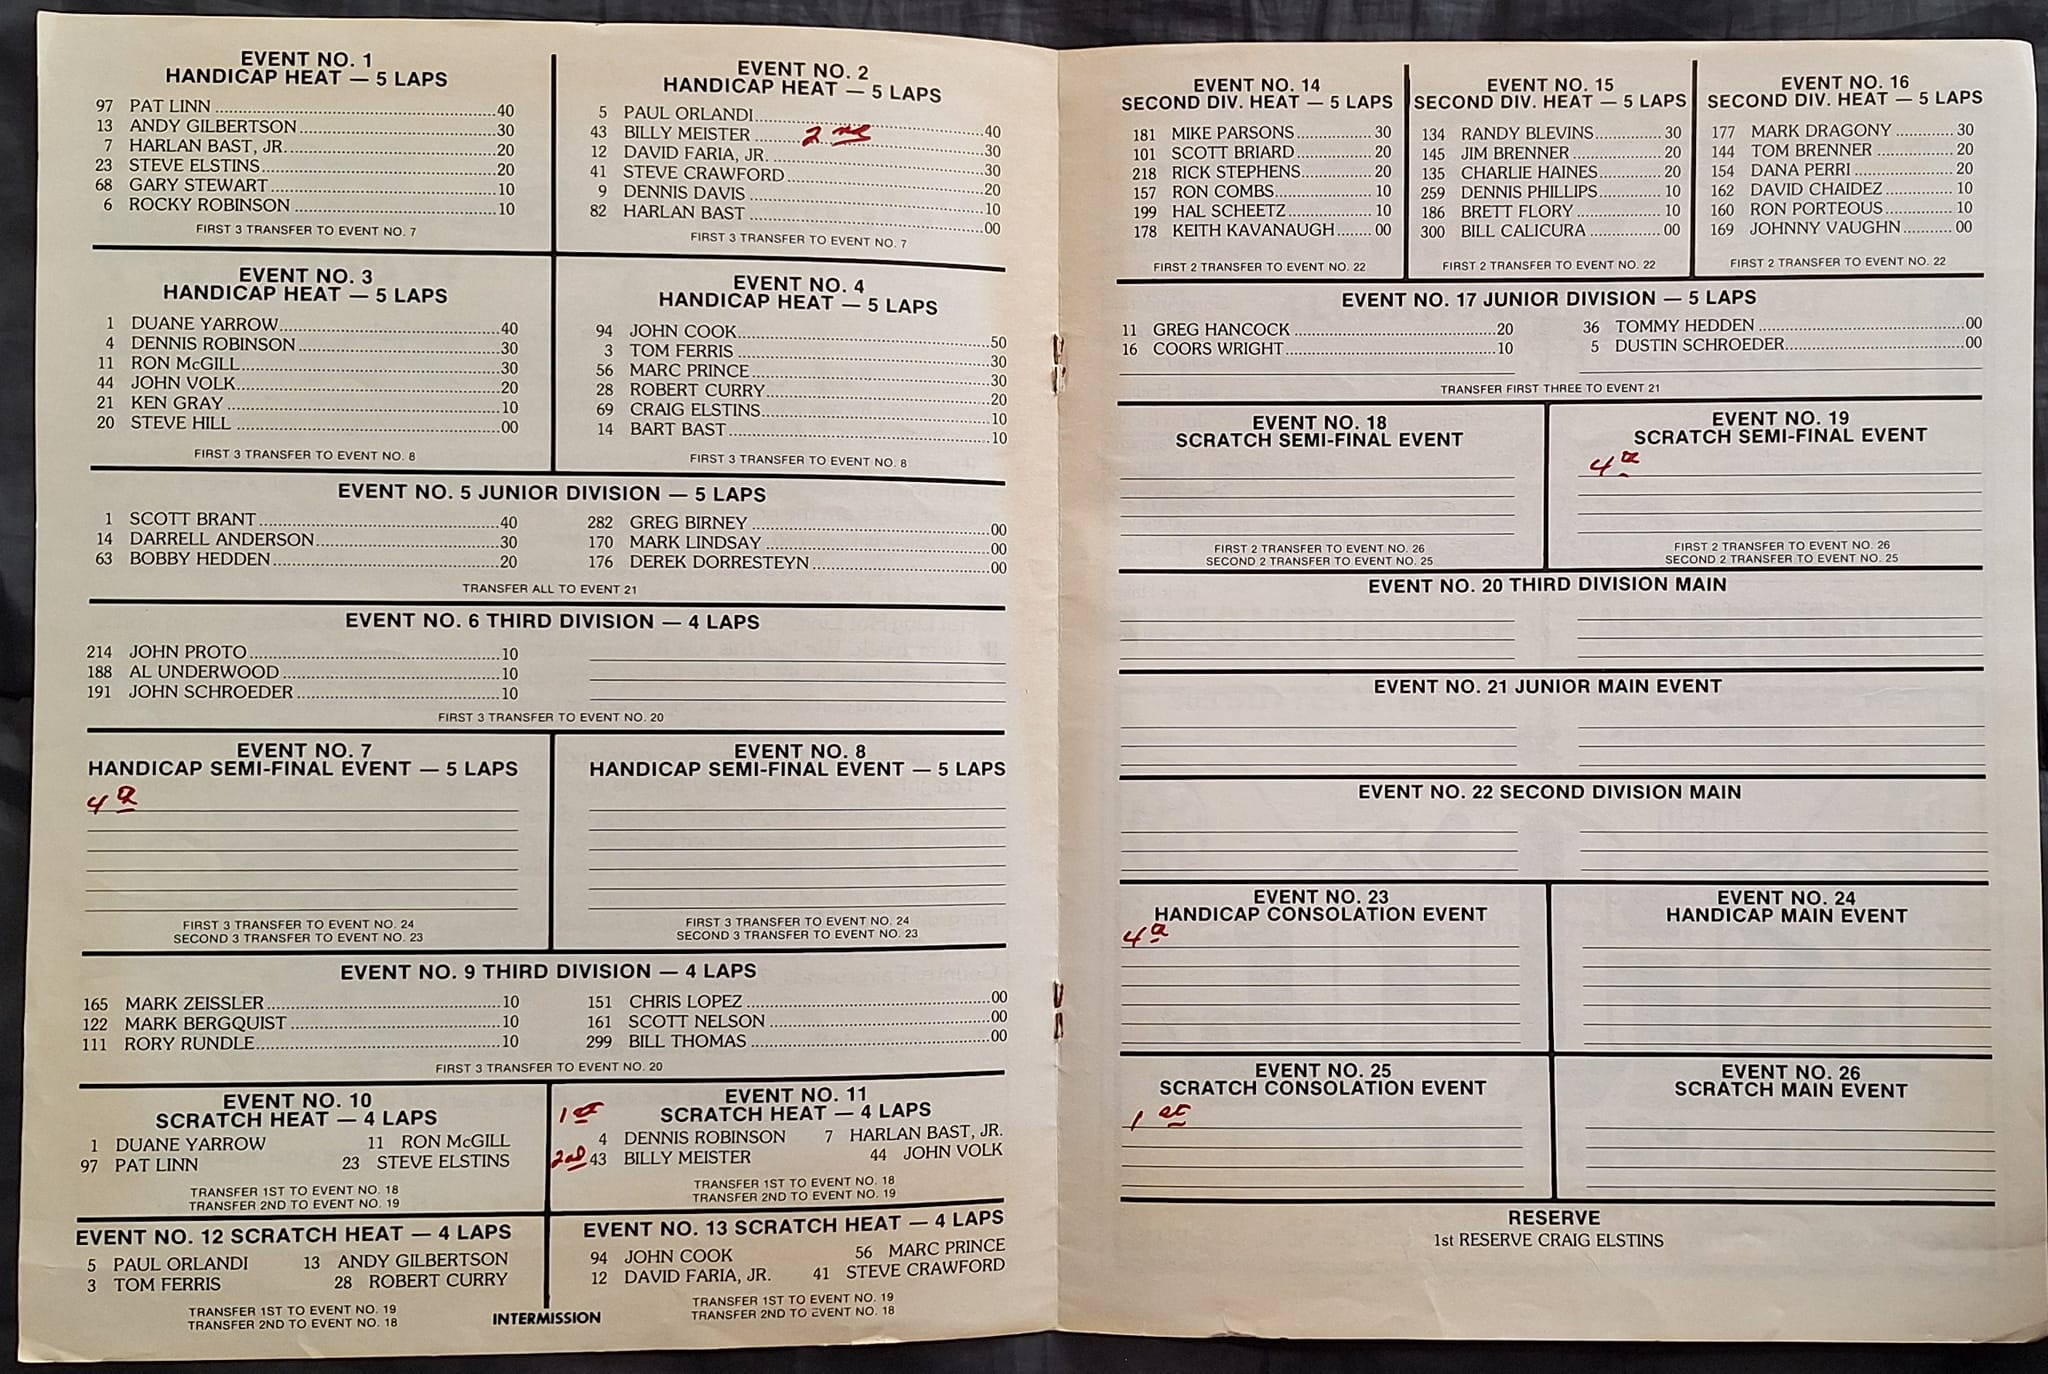 EVENT NO. 1
HANDICAP HEAT — 5 LAPS
97 PAT LINN 40
13 ANDY GILBERTSON 30
7 HARLAN BAST, JR. 20
23 STEVE ELSTINS 20
68 GARY STEWART 10
6 ROCKY ROBINSON 10
FIRST 3 TRANSFER TO EVENT NO. 7
EVENT NO. 2
HANDICAP HEAT — 5 LAPS
5 PAUL ORLANDI 40
43 BILLY MEISTER 2nd 30
12 DAVID FARIA, JR. 30
41 STEVE CRAWFORD 20
9 DENNIS DAVIS 10
82 HARLAN BAST 00
FIRST 3 TRANSFER TO EVENT NO. 7
EVENT NO. 3
HANDICAP HEAT — 5 LAPS
1 DUANE YARROW 40
4 DENNIS ROBINSON 30
11 RON McGILL 30
44 JOHN VOLK 20
21 KEN GRAY 10
20 STEVE HILL 00
FIRST 3 TRANSFER TO EVENT NO. 8
EVENT NO. 4
HANDICAP HEAT — 5 LAPS
94 JOHN COOK 50
3 TOM FERRIS 30
56 MARC PRINCE 30
28 ROBERT CURRY 20
69 CRAIG ELSTINS 10
14 BART BAST 10
FIRST 3 TRANSFER TO EVENT NO. 8
EVENT NO. 5 JUNIOR DIVISION — 5 LAPS
1 SCOTT BRANT 40
14 DARRELL ANDERSON 30
63 BOBBY HEDDEN 20
282 GREG BIRNEY 00
170 MARK LINDSAY 00
176 DEREK DORRESTEYN 00
TRANSFER ALL TO EVENT 21
EVENT NO. 6 THIRD DIVISION — 4 LAPS
214 JOHN PROTO 10
188 AL UNDERWOOD 10
191 JOHN SCHROEDER 10
FIRST 3 TRANSFER TO EVENT NO. 20
EVENT NO. 7
HANDICAP SEMI-FINAL EVENT — 5 LAPS
4th
FIRST 3 TRANSFER TO EVENT NO. 24
SECOND 3 TRANSFER TO EVENT NO. 23
EVENT NO. 8
HANDICAP SEMI-FINAL EVENT — 5 LAPS
FIRST 3 TRANSFER TO EVENT NO. 24
SECOND 3 TRANSFER TO EVENT NO. 23
EVENT NO. 9 THIRD DIVISION — 4 LAPS
165 MARK ZEISSLER 10
122 MARK BERGQUIST 10
111 RORY RUNDLE 10
151 CHRIS LOPEZ 00
161 SCOTT NELSON 00
299 BILL THOMAS 00
FIRST 3 TRANSFER TO EVENT NO. 20
EVENT NO. 10
SCRATCH HEAT — 4 LAPS
1 DUANE YARROW 11 RON McGILL
97 PAT LINN 23 STEVE ELSTINS
TRANSFER 1ST TO EVENT NO. 18
TRANSFER 2ND TO EVENT NO. 19
EVENT NO. 11
SCRATCH HEAT — 4 LAPS
1st 4 DENNIS ROBINSON 7 HARLAN BAST, JR.
2nd 43 BILLY MEISTER 44 JOHN VOLK
TRANSFER 1ST TO EVENT NO. 18
TRANSFER 2ND TO EVENT NO. 19
EVENT NO. 12 SCRATCH HEAT — 4 LAPS
5 PAUL ORLANDI 13 ANDY GILBERTSON
3 TOM FERRIS 28 ROBERT CURRY
TRANSFER 1ST TO EVENT NO. 19
TRANSFER 2ND TO EVENT NO. 18
EVENT NO. 13 SCRATCH HEAT — 4 LAPS
94 JOHN COOK 56 MARC PRINCE
12 DAVID FARIA, JR. 41 STEVE CRAWFORD
TRANSFER 1ST TO EVENT NO. 19
TRANSFER 2ND TO EVENT NO. 18
INTERMISSION
EVENT NO. 14
SECOND DIV. HEAT — 5 LAPS
181 MIKE PARSONS 30
101 SCOTT BRIARD 20
218 RICK STEPHENS 20
157 RON COMBS 10
199 HAL SCHEETZ 10
178 KEITH KAVANAUGH 00
FIRST 2 TRANSFER TO EVENT NO. 22
EVENT NO. 15
SECOND DIV. HEAT — 5 LAPS
134 RANDY BLEVINS 30
145 JIM BRENNER 20
135 CHARLIE HAINES 20
259 DENNIS PHILLIPS 10
186 BRETT FLORY 10
300 BILL CALICURA 00
FIRST 2 TRANSFER TO EVENT NO. 22
EVENT NO. 16
SECOND DIV. HEAT — 5 LAPS
177 MARK DRAGONY 30
144 TOM BRENNER 20
154 DANA PERRI 20
162 DAVID CHAIDEZ 10
160 RON PORTEOUS 10
169 JOHNNY VAUGHN 00
FIRST 2 TRANSFER TO EVENT NO. 22
EVENT NO. 17 JUNIOR DIVISION — 5 LAPS
11 GREG HANCOCK 20
16 COORS WRIGHT 10
36 TOMMY HEDDEN 00
5 DUSTIN SCHROEDER 00
TRANSFER FIRST THREE TO EVENT 21
EVENT NO. 18
SCRATCH SEMI-FINAL EVENT
FIRST 2 TRANSFER TO EVENT NO. 26
SECOND 2 TRANSFER TO EVENT NO. 25
EVENT NO. 19
SCRATCH SEMI-FINAL EVENT
4th
FIRST 2 TRANSFER TO EVENT NO. 26
SECOND 2 TRANSFER TO EVENT NO. 25
EVENT NO. 20 THIRD DIVISION MAIN
EVENT NO. 21 JUNIOR MAIN EVENT
EVENT NO. 22 SECOND DIVISION MAIN
EVENT NO. 23
HANDICAP CONSOLATION EVENT
4th
EVENT NO. 24
HANDICAP MAIN EVENT
EVENT NO. 25
SCRATCH CONSOLATION EVENT
1st
EVENT NO. 26
SCRATCH MAIN EVENT
RESERVE
1st RESERVE CRAIG ELSTINS